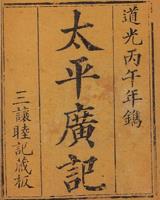 道光丙午年鐫
太平廣記
三讓睦記藏板